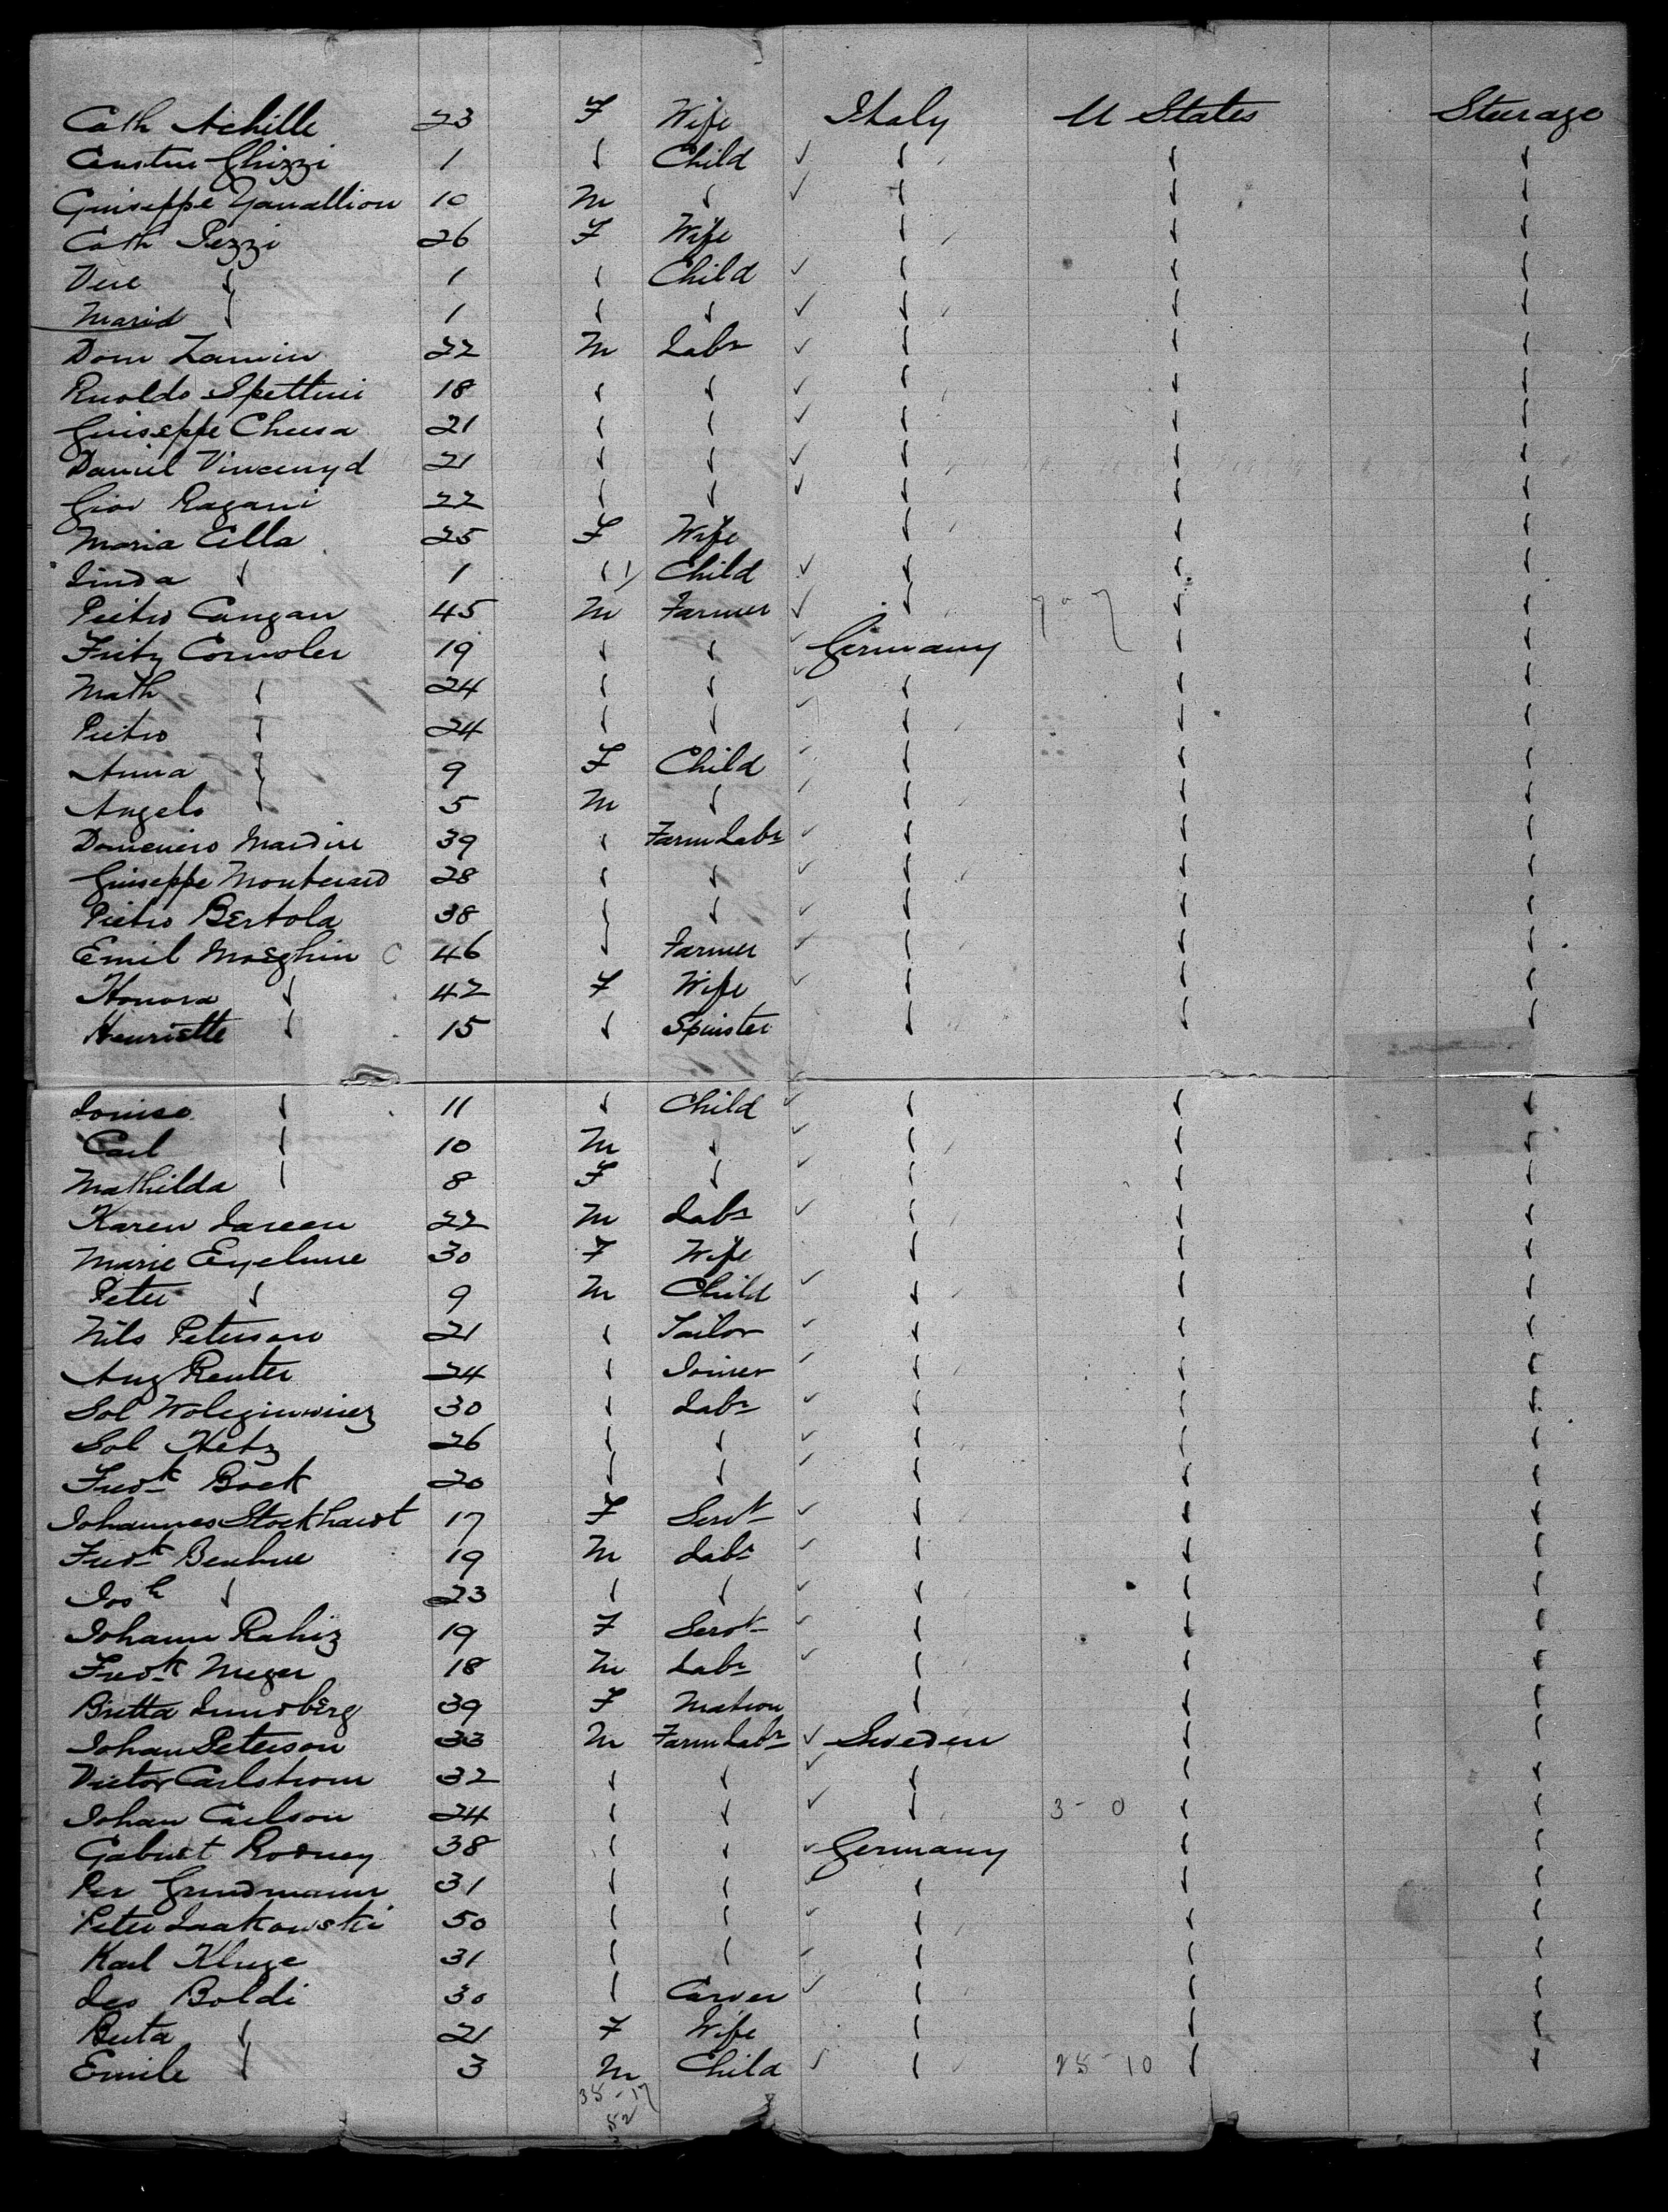 Cath Achille 23 F Wife Italy U States Steerage
Ghizzi 1 ✓ Child ✓ ✓ ✓ ✓
Guiseppe 10 M ✓ ✓ ✓ ✓ ✓
Cath Pezzi 26 F Wife ✓ ✓ ✓
Vere ✓ 1 ✓ Child ✓ ✓ ✓ ✓
Maria ✓ 1 ✓ ✓ ✓ ✓ ✓ ✓
Dom Zamin 22 M Labr ✓ ✓ ✓ ✓
Rnoldo Spettini 18 ✓ ✓ ✓ ✓ ✓ ✓
Guiseppe Cheesa 21 ✓ ✓ ✓ ✓ ✓ ✓
Daniel Vincenyd 21 ✓ ✓ ✓ ✓ ✓ ✓
Giov Ragani 22 ✓ ✓ ✓ ✓ ✓ ✓
Maria Cella 25 F Wife ✓ ✓ ✓
Linda ✓ 1 ✓ Child ✓ ✓ ✓ ✓
Pietro Cangan 45 M Farmer ✓ ✓ ✓ ✓
Fritz Cornoler 19 ✓ ✓ ✓ Germany ✓ ✓
Math ✓ 24 ✓ ✓ ✓ ✓ ✓ ✓
Pietro ✓ 24 ✓ ✓ ✓ ✓ ✓ ✓
Anna ✓ 9 F Child ✓ ✓ ✓ ✓
Angelo ✓ 5 M ✓ ✓ ✓ ✓ ✓
Domenico Mardin 39 ✓ Farm Labr ✓ ✓ ✓ ✓
Guiseppe 28 ✓ ✓ ✓ ✓ ✓ ✓
Pietro Bertola 38 ✓ ✓ ✓ ✓ ✓ ✓
Emil Moeghin C 46 ✓ Farmer ✓ ✓ ✓ ✓
Honora ✓ 42 F Wife ✓ ✓ ✓ ✓
Henriette ✓ 15 ✓ Spinster ✓ ✓ ✓
Louise ✓ 11 ✓ Child ✓ ✓ ✓ ✓
Carl ✓ 10 M ✓ ✓ ✓ ✓ ✓
Mathilda ✓ 8 F ✓ ✓ ✓ ✓ ✓
Karen Larsen 22 M Labr ✓ ✓ ✓ ✓
Marie 30 F Wife ✓ ✓ ✓
Peter ✓ 9 M Child ✓ ✓ ✓ ✓
Nils Peterson 21 ✓ Tailor ✓ ✓ ✓ ✓
Aug Reuter 24 ✓ Joiner ✓ ✓ ✓ ✓
Sol 30 ✓ Labr ✓ ✓ ✓ ✓
Sol Hetz 26 ✓ ✓ ✓ ✓ ✓ ✓
Fredk Bock 20 ✓ ✓ ✓ ✓ ✓ ✓
Johannes Stockhardt 17 F Servt ✓ ✓ ✓ ✓
Fredk Benhne 19 M Labr ✓ ✓ ✓ ✓
Josh ✓ 23 ✓ ✓ ✓ ✓ ✓ ✓
Johann Rahiz 19 F Servt ✓ ✓ ✓ ✓
Fredk Meger 18 M Labr ✓ ✓ ✓ ✓
Britta Lundberg 39 F Matron ✓ ✓ ✓
Johan Peterson 33 M Farm Labr ✓ Sweden ✓ ✓
Victor Carlstrom 32 ✓ ✓ ✓ ✓ ✓ ✓
Johan Carlson 24 ✓ ✓ ✓ ✓ 3 - 0 ✓ ✓
Rodney 38 ✓ ✓ ✓ Germany ✓ ✓
Per Grundmann 31 ✓ ✓ ✓ ✓ ✓ ✓
Peter Laakowski 50 ✓ ✓ ✓ ✓ ✓ ✓
Karl Kluge 31 ✓ ✓ ✓ ✓ ✓ ✓
Leo Boldi 30 ✓ Carver ✓ ✓ ✓ ✓
Berta ✓ 21 F Wife ✓ ✓ ✓
Emile ✓ 3 M Child ✓ ✓ 25 - 10 ✓ ✓
35 - 17
52